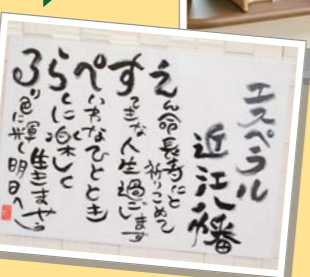 エスペラル
近江八幡
えん命長寿にと
祈りこめて
すてきな人生過ごします
ぺいちなひととき
らくに楽しく
生きませう
るり色に光輝く明日へ